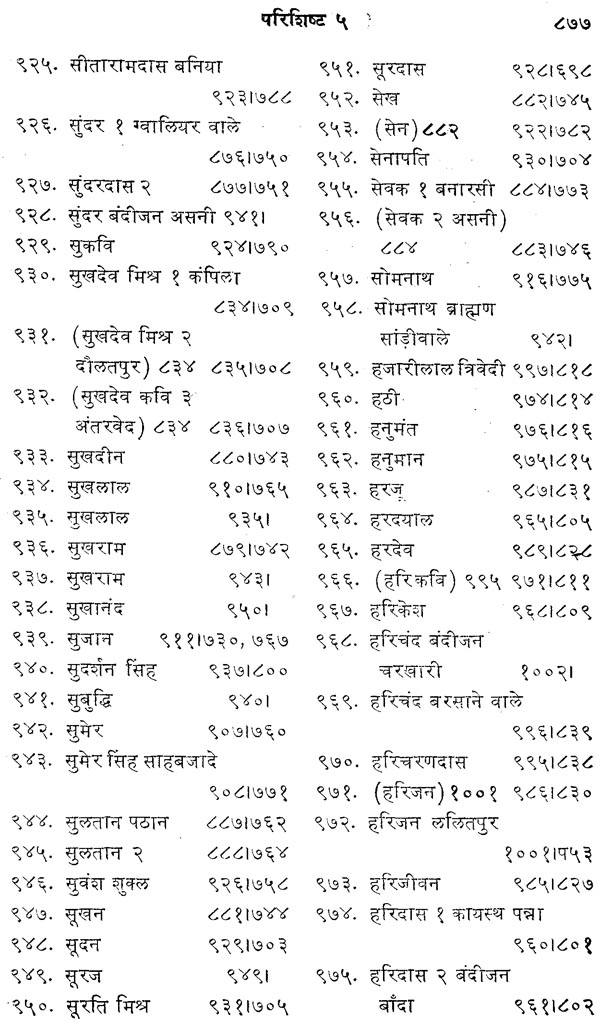 परिशिष्ट ५
८७७
९२५. सीतारामदास बनिया
९२३।७८८
९२६. सुंदर १ ग्वालियर वाले
८७६।७५०
९२७. सुंदरदास २ ८७७।७५१
९२८. सुंदर बंदीजन असनी ९४१।
९२९. सुकवि ९२४।७९०
९३०. सुखदेव मिश्र १ कंपिला
८३४।७०९
९३१. (सुखदेव मिश्र २
दौलतपुर) ८३४ ८३५।७०८
९३२. (सुखदेव कवि ३
अंतरवेद) ८३४ ८३६।७०७
९३३. सुखदीन ८८०।७४३
९३४. सुखलाल ९१०।७६५
९३५. सुखलाल ९३५।
९३६. सुखराम ८७९।७४२
९३७. सुखराम ९४३।
९३८. सुखानंद ९५०।
९३९. सुजान ९११।७३०, ७६७
९४०. सुदर्शन सिंह ९३७।८००
९४१. सुबुद्धि ९४०।
९४२. सुमेर ९०७।७६०
९४३. सुमेर सिंह साहबजादे
९०८।७७१
९४४. सुलतान पठान ८८७।७६२
९४५. सुलतान २ ८८८।७६४
९४६. सुवंश शुक्ल ९२६।७५८
९४७. सूखन ८८१।७४४
९४८. सूदन ९२९।७०३
९४९. सूरज ९४९।
९५०. सूरति मिश्र ९३१।७०५
९५१. सूरदास ९२८।६९८
९५२. सेख ८८२।७४५
९५३. (सेन) ८८२ ९२२।७८२
९५४. सेनापति ९३०।७०४
९५५. सेवक १ बनारसी ८८४।७७३
९५६. (सेवक २ असनी)
८८४ ८८३।७४६
९५७. सोमनाथ ९१६।७७५
९५८. सोमनाथ ब्राह्मण
सांड़ीवाले ९४२।
९५९. हजारीलाल त्रिवेदी ९९७।८१८
९६०. हठी ९७४।८१४
९६१. हनुमंत ९७६।८१६
९६२. हनुमान ९७५।८१५
९६३. हरजू ९८७।८३१
९६४. हरदयाल ९६५।८०५
९६५. हरदेव ९८९।८२८
९६६. (हरिकवि) ९९५ ९७१।८११
९६७. हरिकेश ९६८।८०९
९६८. हरिचंद बंदीजन
चरखारी १००२।
९६९. हरिचंद बरसाने वाले
९९६।८३९
९७०. हरिचरणदास ९९५।८३८
९७१. (हरिजन) १००१ ९८६।८३०
९७२. हरिजन ललितपुर
१००१।प५३
९७३. हरिजीवन ९८५।८२७
९७४. हरिदास १ कायस्थ पन्ना
९६०।८०१
९७५. हरिदास २ बंदीजन
बाँदा ९६१।८०२